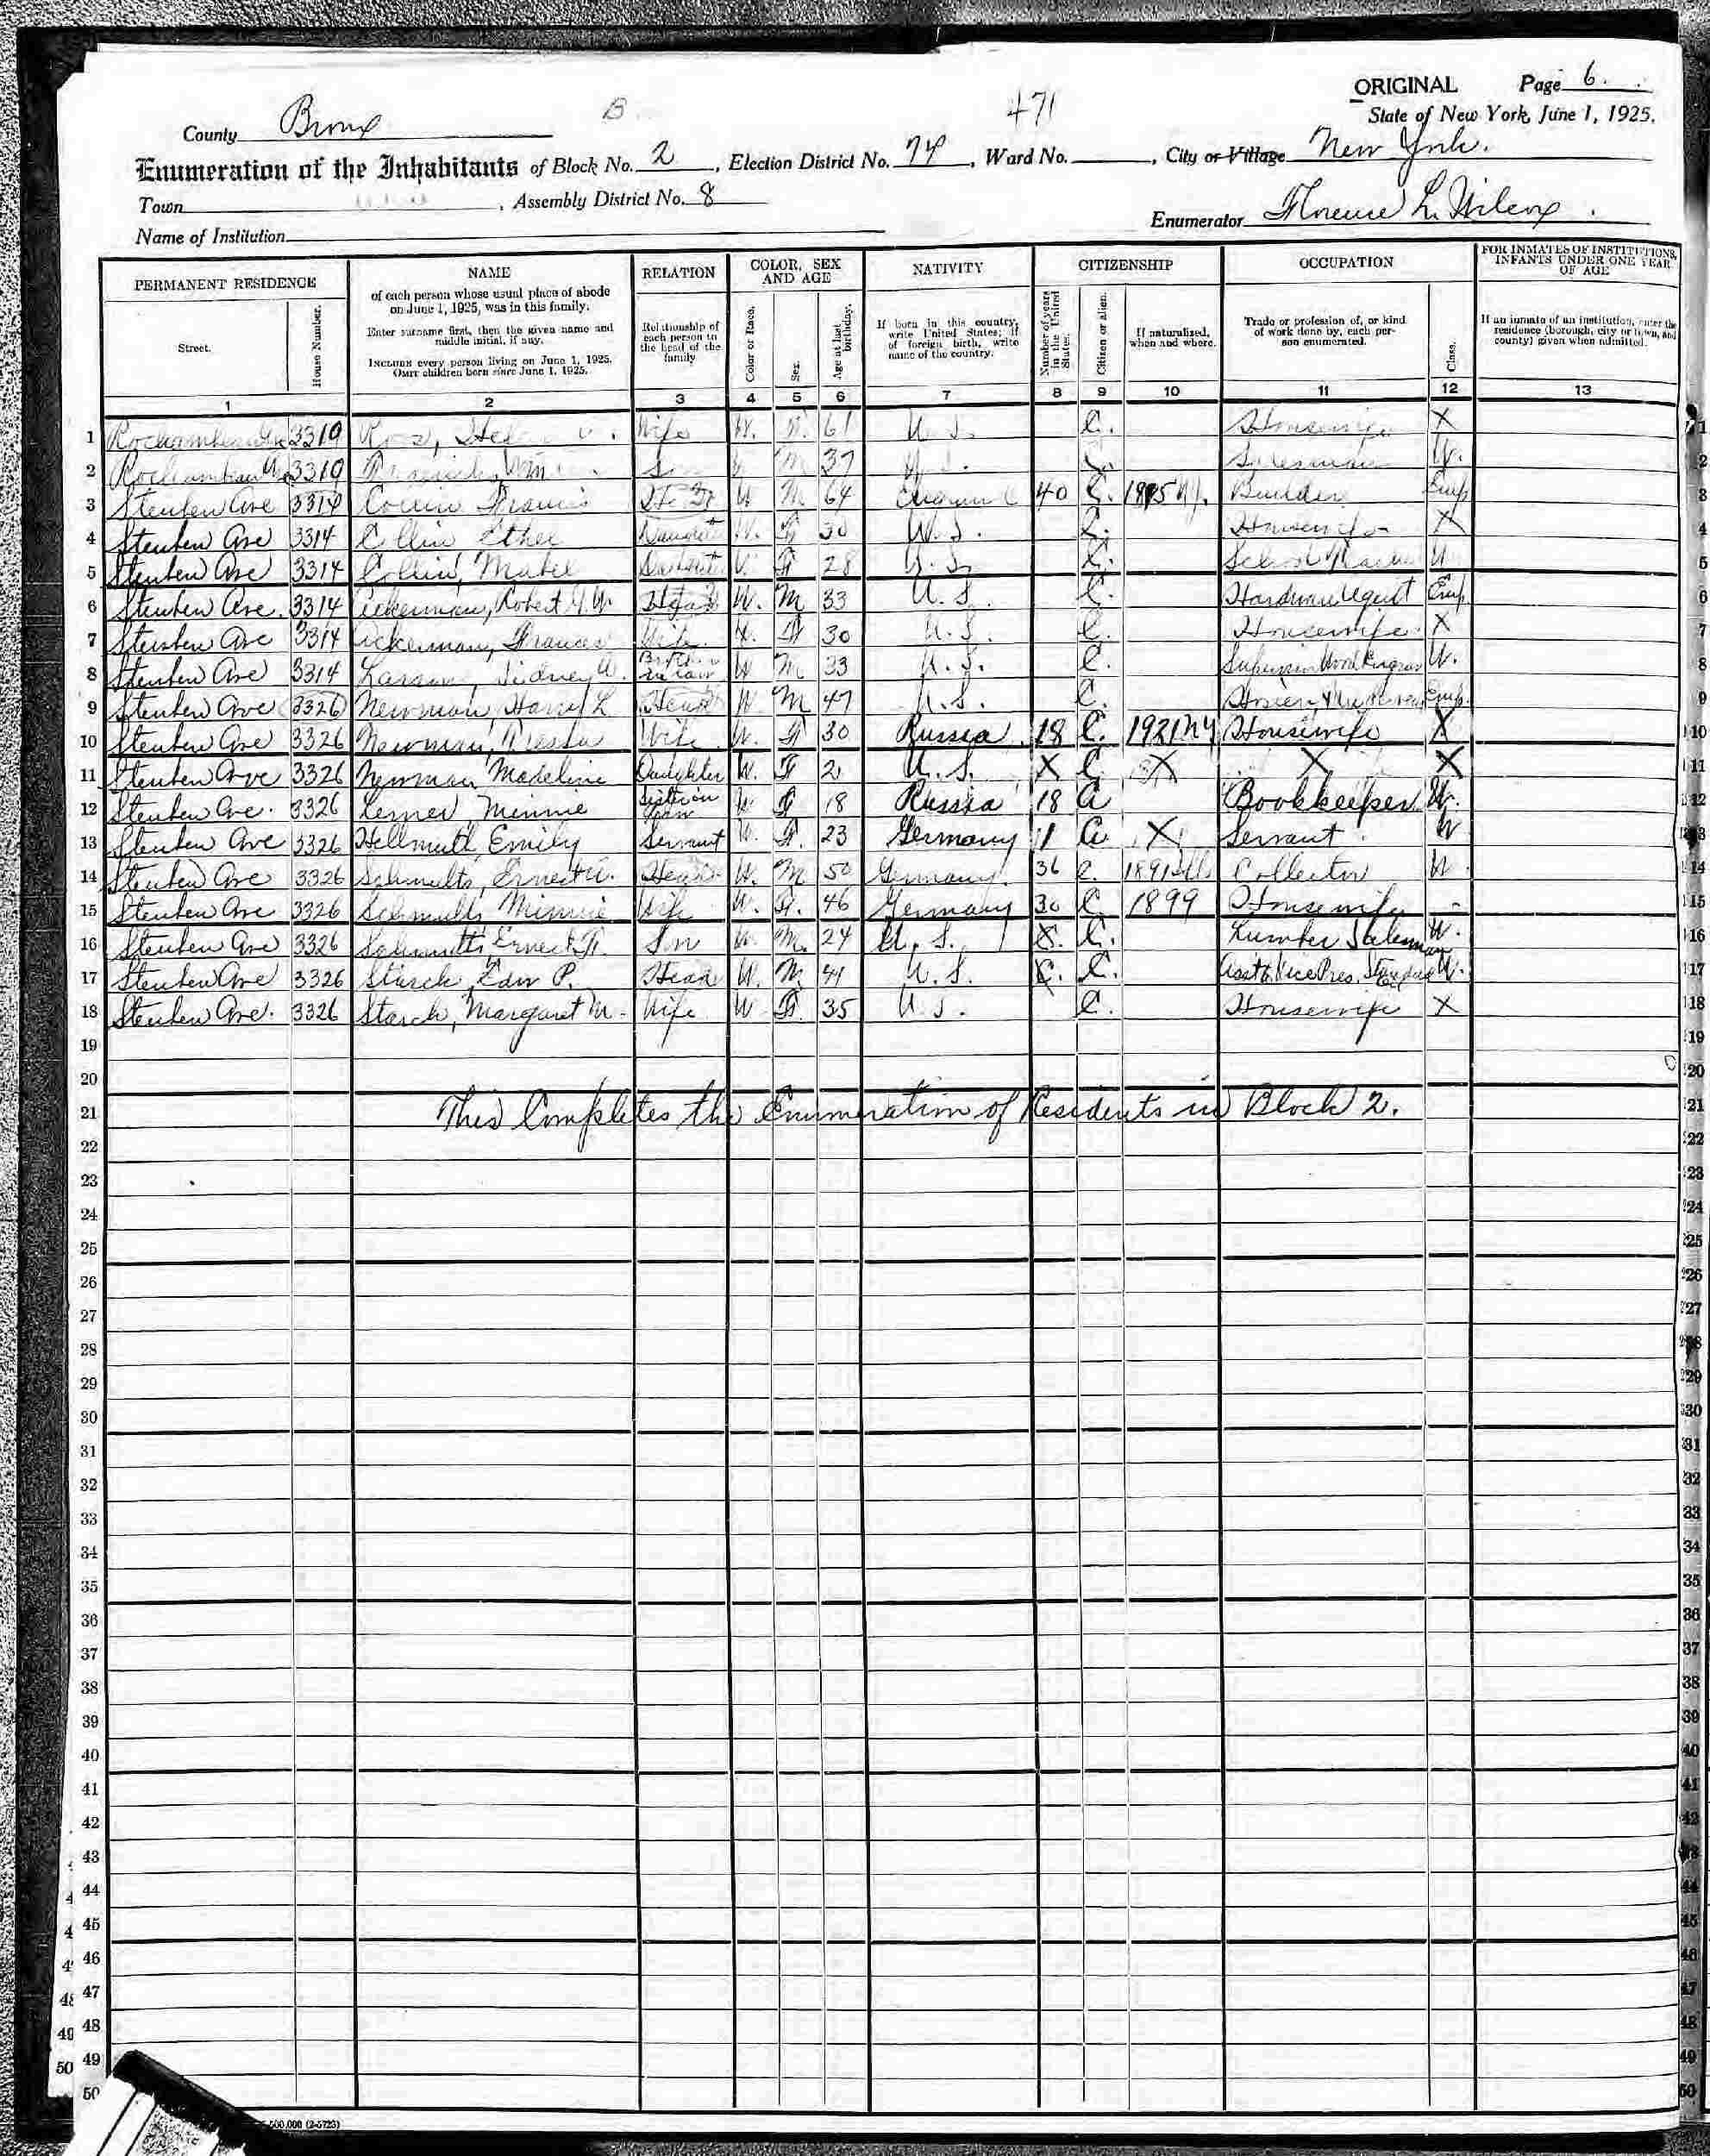 ORIGINAL Page 6.
State of New York, June 1, 1925.
471
B
County Bronx
Enumeration of the Inhabitants of Block No. 2, Election District No. 74, Ward No. , City or Village New York.
Town , Assembly District No. 8
Enumerator Florence L. Wilcox.
Name of Institution
PERMANENT RESIDENCE NAME RELATION COLOR, SEX AND AGE NATIVITY CITIZENSHIP OCCUPATION FOR INMATES OF INSTITUTIONS, INFANTS UNDER ONE YEAR OF AGE
Street. House Number.
of each person whose usual place of abode on June 1, 1925, was in this family.
Enter surname first, then the given name and middle initial, if any.
INCLUDE every person living on June 1, 1925. OMIT children born since June 1, 1925.
Relationship of each person to the head of the family.
Color or Race. Sex. Age at last birthday.
If born in this country, write United States; if of foreign birth, write name of the country.
Number of years in the United States. Citizen or alien. If naturalized, when and where.
Trade or profession of, or kind of work done by, each person enumerated. Class.
If an inmate of an institution, enter the residence (borough, city or town, and county) given when admitted.
1 2 3 4 5 6 7 8 9 10 11 12 13
1 3319 Wife W. 61 U.S. C. Housewife X 1
2 3319 M 37 Salesman W. 2
3 Steuben Ave 3314 Francis M 64 40 C. Builder Emp 3
4 Steuben Ave 3314 Collin W. F 30 U.S. C. Housewife X 4
5 Steuben Ave 3314 Collin, Mabel F 28 U.S. School W 5
6 Steuben Ave. 3314 Ackerman, Robert Head W. M 33 U.S. C. Hardware Agent Emp. 6
7 Steuben Ave 3314 Ackerman, Frances Wife W. F 30 U.S. C. Housewife X 7
8 Steuben Ave 3314 Sidney W. Brother in law W M 33 U.S. C. W. 8
9 Steuben Ave 3326 Newman, Harry L Head W. M 47 U.S. C. Emp. 9
10 Steuben Ave 3326 Newman, Wife W. F 30 Russia 18 C. 1921 NY Housewife X 10
11 Steuben Ave 3326 Newman, Madeline Daughter W. F 2 U.S. X C X X X 11
12 Steuben Ave. 3326 Lerner, Minnie Sister in law W F 18 Russia 18 A Bookkeeper W. 12
13 Steuben Ave 3326 Hellmuth, Emily Servant W. F. 23 Germany 1 A X Servant W 13
14 Steuben Ave 3326 Schmults, Ernest Head W. M 50 Germany 36 C. 1891 Collector W 14
15 Steuben Ave 3326 Schmults, Minnie Wife W. F. 46 Germany 30 C 1899 Housewife - 15
16 Steuben Ave 3326 Schmults, Ernest Son W. M. 24 U.S. X. C. Lumber Salesman W. 16
17 Steuben Ave 3326 Starck, Edw P. Head W. M. 41 U.S. C. C. Asst Vice Pres. W. 17
18 Steuben Ave. 3326 Starck, Margaret M. Wife W F. 35 U.S. C. Housewife X 18
19 19
20 20
21 This Completes the Enumeration of Residents in Block 2. 21
22 22
23 23
24 24
25 25
26 26
27 27
28 28
29 29
30 30
31 31
32 32
33 33
34 34
35 35
36 36
37 37
38 38
39 39
40 40
41 41
42 42
43 43
44 44
45 45
46 46
47 47
48 48
49 49
50 50
500,000 (2-5723)